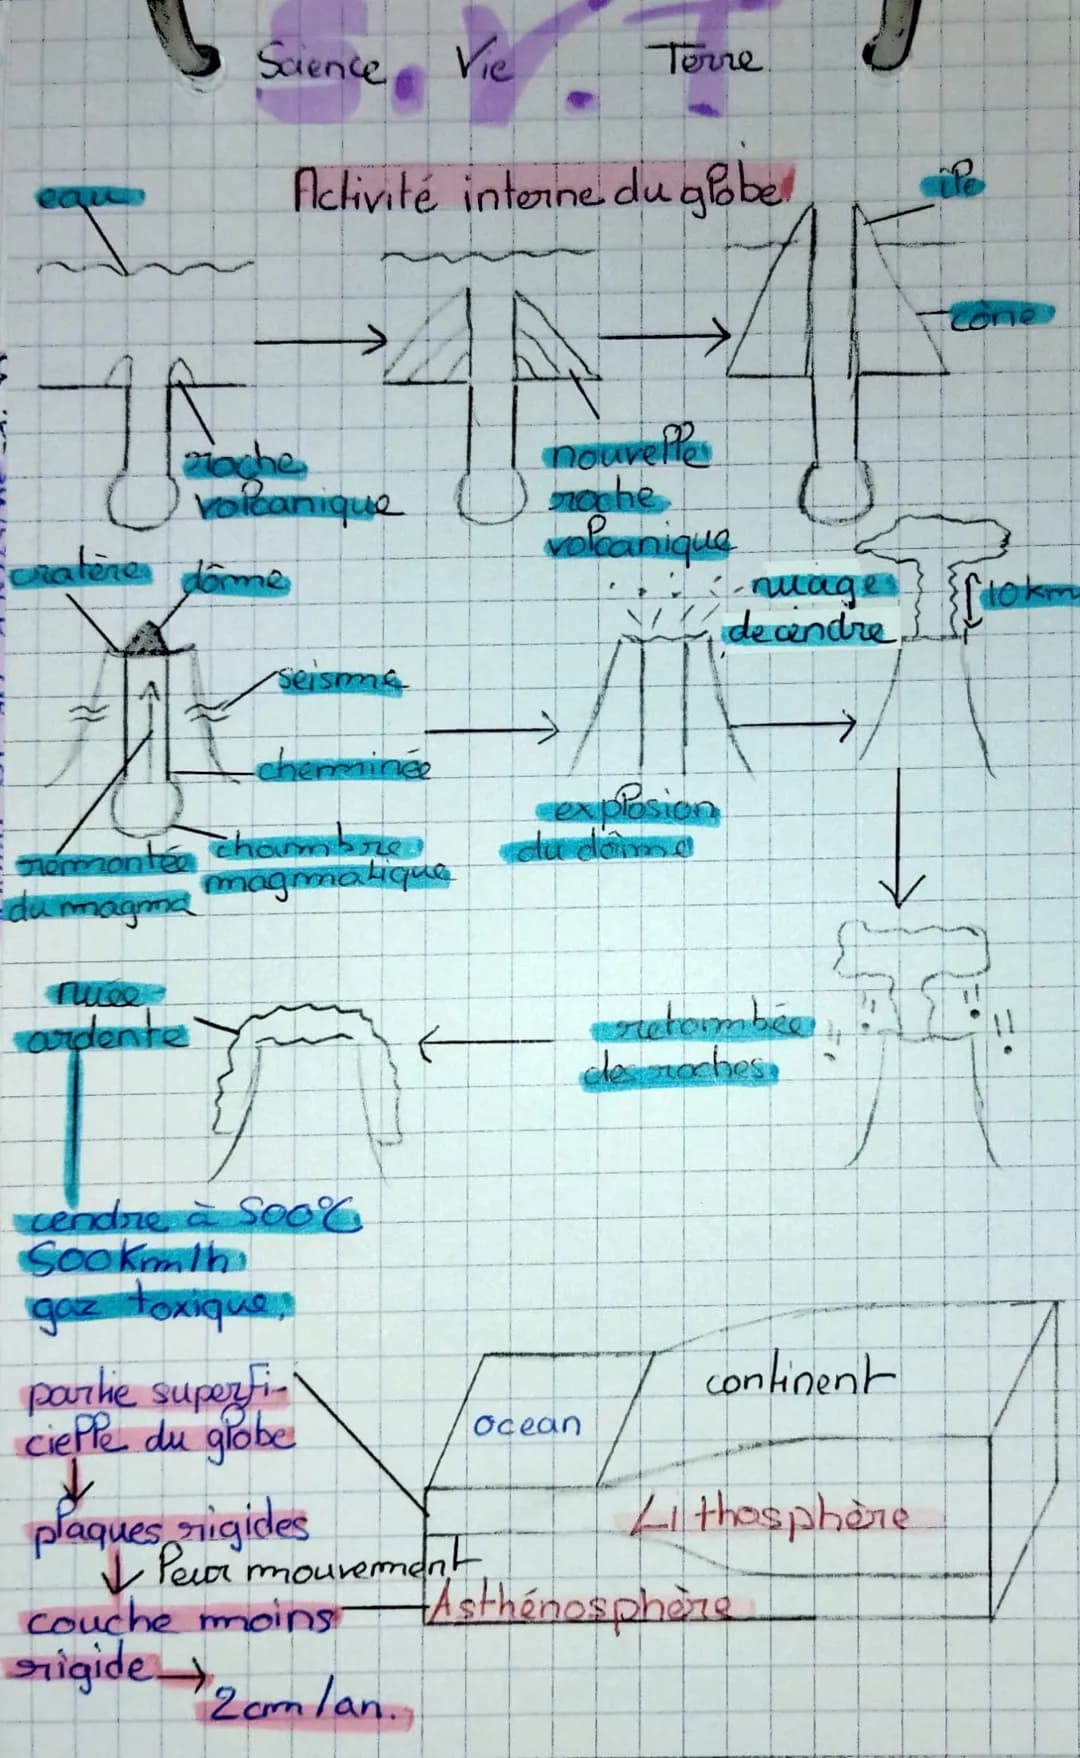 S.V.T
Science Vie Terre
Activité interne du globe
eau
île
cône
roche
volcanique
nouvelle
roche
volcanique
cratère
dôme
nuage
de cendre
10 km
seisme
cheminée
explosion
du dôme
chambre
magmatique
remontée
du magma
nuée
ardente
retombée
des roches
cendre à 500°C
500km/h
gaz toxique
partie superfi-
cielle du globe
ocean
continent
plaques rigides
Lithosphère
Leur mouvement
couche moins
rigide
Asthénosphère
2cm/an.